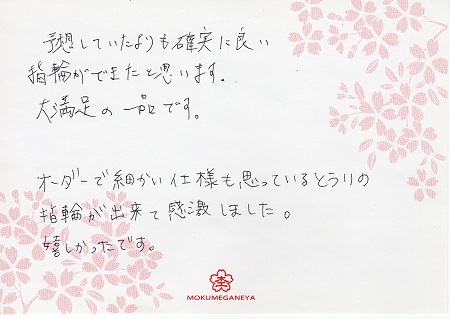 予想していたよりも確実に良い
指輪ができたと思います。
大満足の一品です。
オーダーで細かい仕様も思っているとうりの
指輪が出来て感激しました。
嬉しかったです。
MOKUMEGANEYA